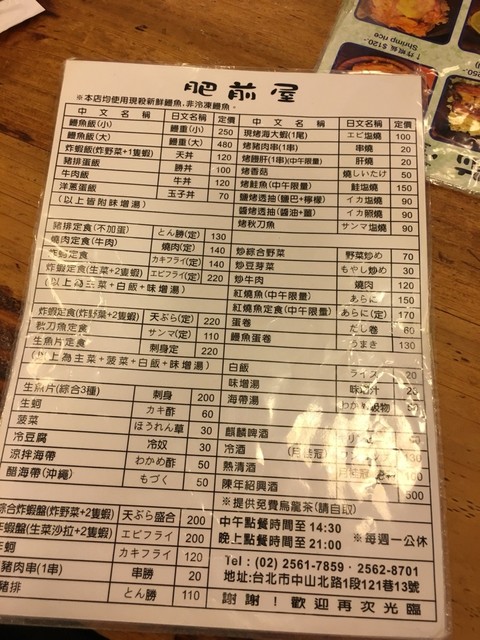 肥前屋
※本店均使用現殺新鮮鰻魚,非冷凍鰻魚。
中文名稱 日文名稱 定價
鰻魚飯(小) 鰻重(小) 250
鰻魚飯(大) 鰻重(大) 480
炸蝦飯(炸野菜+1隻蝦) 天丼 120
豬排蛋飯 勝丼 100
牛肉飯 牛丼 120
洋蔥蛋飯 玉子丼 70
(以上皆附味增湯)
豬排定食(不加蛋) とん勝(定) 130
燒肉定食(牛肉) 燒肉(定) 140
定食 カキフライ(定) 140
炸蝦定食(生菜+2隻蝦) エビフライ(定) 220
(以上為主菜+白飯+味增湯)
炸蝦定食(炸野菜+2隻蝦) 天ぷら(定) 220
秋刀魚定食 サンマ(定) 110
生魚片定食 刺身定 220
(以上為主菜+菠菜+白飯+味增湯)
生魚片(綜合3種) 刺身 200
生蚵 カキ酢 60
菠菜 ほうれん草 30
冷豆腐 冷奴 30
涼拌海帶 わかめ酢 50
醋海帶(沖繩) もづく 50
綜合炸蝦盤(炸野菜+2隻蝦) 天ぷら盛合 200
炸蝦盤(生菜沙拉+2隻蝦) エビフライ 200
炸蚵 カキフライ 120
豬肉串(1串) 串勝 20
豬排 とん勝 110
中文名稱 日文名稱 定價
現烤海大蝦(1尾) エビ塩燒 100
烤豬肉串(1串) 串燒 20
烤鰻肝(1串)(中午限量) 肝燒 20
烤香菇 燒しいたけ 50
烤鮭魚(中午限量) 鮭塩燒 150
鹽烤透抽(鹽巴+檸檬) イカ塩燒 90
醬烤透抽(醬油+薑) イカ照燒 90
烤秋刀魚 サンマ塩燒 90
炒綜合野菜 野菜炒め 70
炒豆芽菜 もやし炒め 30
炒牛肉 燒肉 120
紅燒魚(中午限量) あらに 150
紅燒魚定食(中午限量) あらに(定) 170
蛋卷 だし卷 60
鰻魚蛋卷 うまき 130
白飯 ライス 20
味增湯 味噌汁
海帶湯 わかめ吸物
麒麟啤酒
冷酒 (月桂冠)
熱清酒 100
陳年紹興酒 500
※提供免費烏龍茶(請自取)
中午點餐時間至 14:30
晚上點餐時間至 21:00 ※每週一公休
Tel:(02) 2561-7859・2562-8701
地址:台北市中山北路1段121巷13號
謝謝!歡迎再次光臨
$120
Shrimp rice